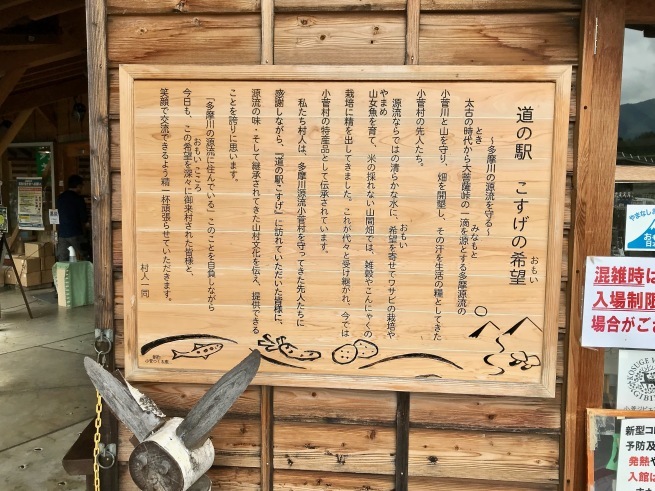 道の駅 こすげの希望
おもい
~多摩川の源流を守る~
太古の時代から大菩薩峠の一滴を源とする多摩源流の
とき
みなもと
小菅川と山を守り、畑を開墾し、その汗を生活の糧としてきた
小菅村の先人たち。
源流ならではの清らかな水に、希望を寄せてワサビの栽培や
おもい
山女魚を育て、米の採れない山間畑では、雑穀やこんにゃくの
やまめ
栽培に精を出してきました。これが代々と受け継がれ、今では
小菅村の特産品として伝承されています。
私たち村人は、多摩川源流小菅村を守ってきた先人たちに
感謝しながら、「道の駅こすげ」に訪れていただいた皆様に、
源流の味・そして継承されてきた山村文化を伝え、提供できる
ことを誇りに思います。
「多摩川の源流に住んでいる」このことを自負しながら
今日も、この希望を深々に御来村された皆様と、
おもい
こころ
笑顔で交流できるよう精一杯頑張らせていただきます。
村人一同
混雑時は
入場制限
場合がご
新型コ
予防及
発熱や
入館は